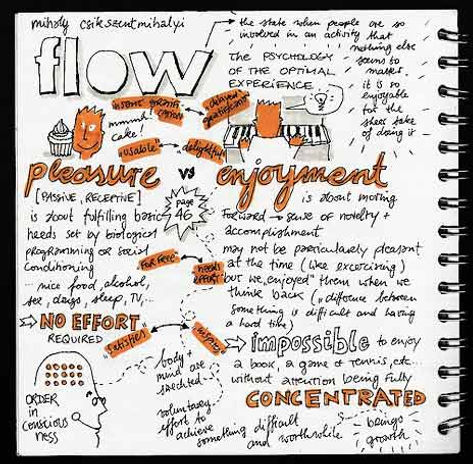 mihaly csikszentmihalyi
flow
the state when people are so
involved in an activity that
nothing else
seems to
matter.
it is so
enjoyable
for the
sheer sake
of doing it
THE PSYCHOLOGY
OF THE OPTIMAL
EXPERIENCE
mmmh!
cake!
"usable"
delightful
pleasure vs enjoyment
[PASSIVE, RECEPTIVE]
is about fulfilling basic
needs set by biological
programming or social
conditioning
nice food, alcohol,
sex, drugs, sleep, TV,...
page
46
is about moving
forward → sense of novelty +
accomplishment
may not be particularly pleasant
at the time (like excercising)
but we "enjoyed" them when we
think back (→ difference between
something is difficult and having
a hard time)
for free
needs
effort
NO EFFORT
REQUIRED
"satisfies"
"inspires"
impossible to enjoy
a book, a game of tennis, etc...
without attention being fully
CONCENTRATED
ORDER
in
conscious
ness
body +
mind are
stretched
voluntary
effort to
achieve
something difficult
and worthwhile
brings
growth